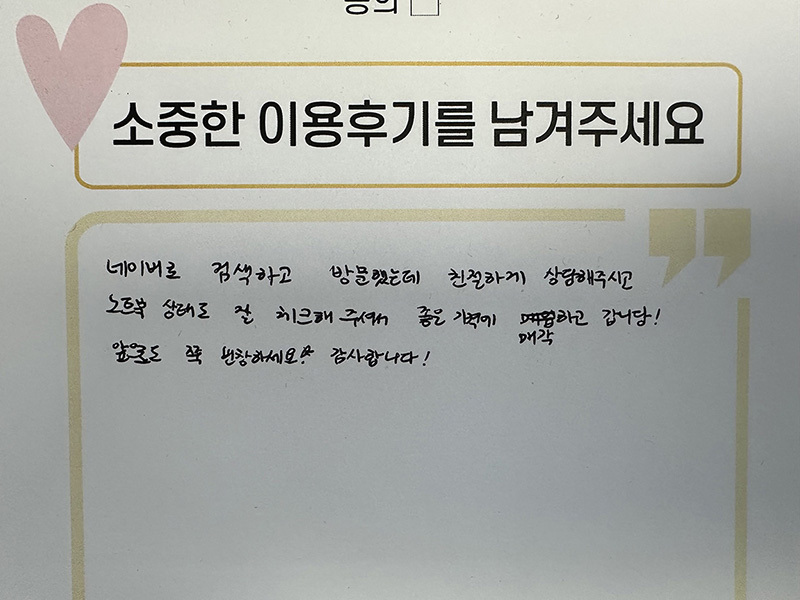 동의 □
소중한 이용후기를 남겨주세요
네이버로 검색하고 방문했는데 친절하게 상담해주시고
노트북 상태도 잘 체크해 주셔서 좋은 가격에 하고 갑니당!
매각
앞으로도 쭉 번창하세요! 감사합니다!